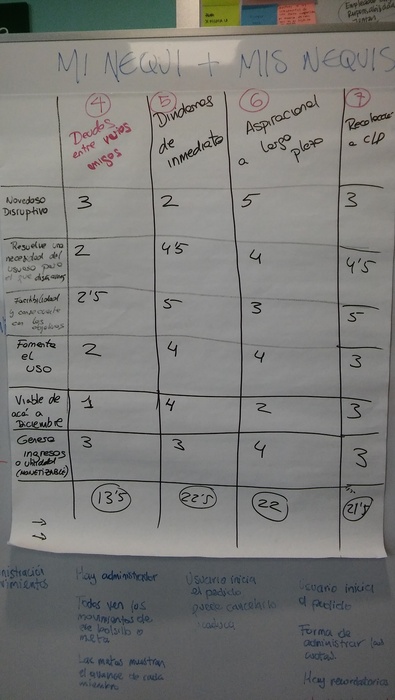 MI NEQUI + MIS NEQUIS
4 5 6 7
Deudas
entre varios
amigos
Dividamos
de
inmediato
Aspiracional
a largo
plazo
Recolección
a C/P
Novedoso
Disruptivo
3 2 5 3
Resuelve una
necesidad del
usuario para
el que diseñamos
2 4'5 4 4'5
Factibilidad
y
con los
objetivos
2'5 5 3 5
Fomenta
el
USO
2 4 4 3
Viable de
acá a
Diciembre
1 4 2 3
Genera
ingresos
o utilidad
(MONETIZABLE)
3 3 4 3
13'5 22'5 22 21'5
Hay administrador
Todos ven los
movimientos de
ese bolsillo o
meta
Las metas muestran
el avance de cada
miembro
Usuario inicia
el pedido
puede cancelarlo
Usuario inicia
el pedido
Forma de
administrar las
cuotas
Hay recordatorios